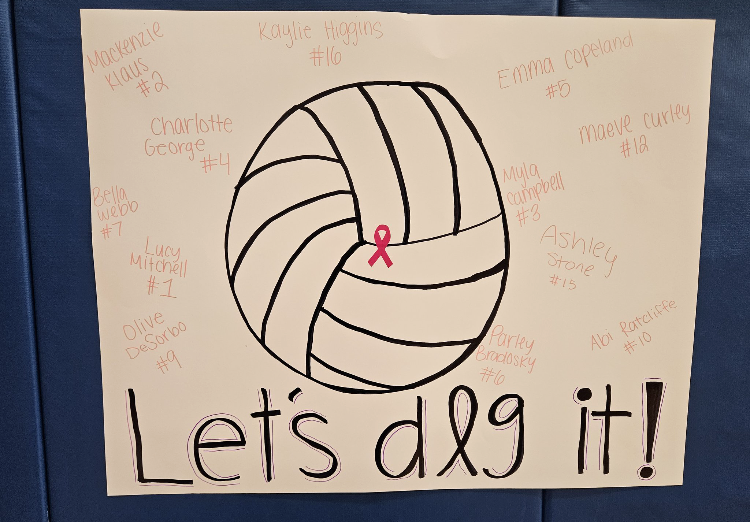 Mackenzie
Klaus
#2
Kaylie Higgins
#16
Emma Copeland
#5
Charlotte
George
#4
Maeve Curley
#12
Bella
Webb
#7
Myla
Campbell
#3
Lucy
Mitchell
#1
Ashley
Stone
#15
Olive
DeSorbo
#9
Parley
Bradosky
#6
Abi Ratcliffe
#10
Let's dig it!